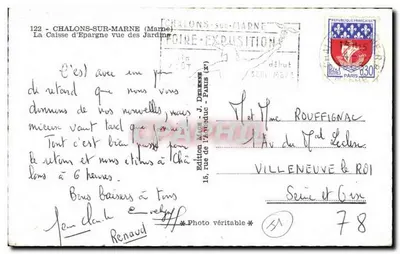 122 - CHALONS-SUR-MARNE (Marne)
La Caisse d'Epargne vue des Jardins
CHALONS-SUR-MARNE
FOIRE-EXPOSITION
REPUBLIQUE FRANCAISE
0,30
PARIS
C'est avec un peu
de retard que nous vous
donnons de nos nouvelles, mais
mieux vaut tard que jamais!
Tout c'est bien passé pour
le retour et nous étions à Châ
lons à 6 heures.
Bons baisers à tous
Jean Claude
Renaud
15, rue de l'Aqueduc - PARIS (Xe)
* Photo véritable *
M et Mme ROUFFIGNAC
Av du Mal Leclerc
VILLENEUVE le ROI
Seine et Oise
78
51